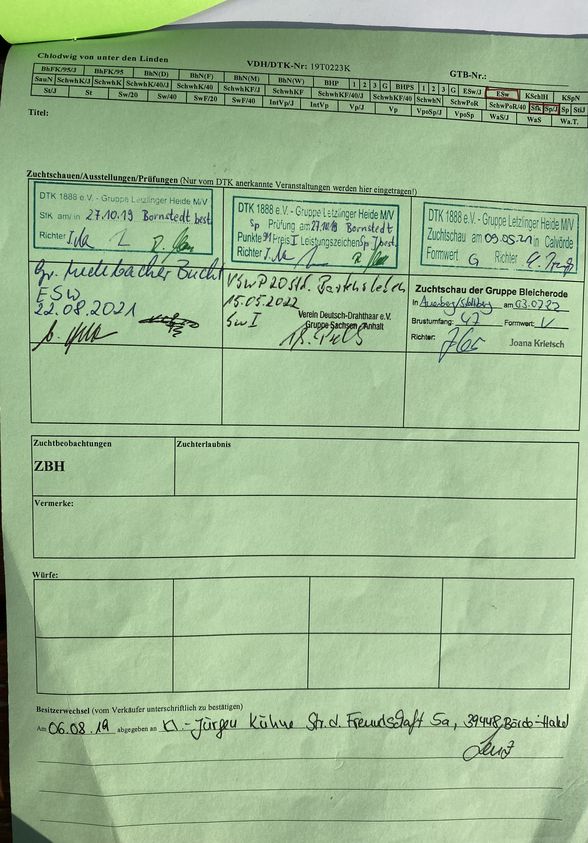 Chlodwig von unter den Linden
VDH/DTK-Nr: 19T0223K
GTB-Nr.:
BhFK/95/J BhFK/95 BhN(D) BhN(F) BhN(M) BhN(W) BHP 1 2 3 G BHPS 1 2 3 G ESw/J ESw KSchlH KSpN
SauN SchwhK/J SchwhK SchwhK/40/J SchwhK/40 SchwhKF/J SchwhKF SchwhKF/40/J SchwhKF/40 SchwhN SchwPoR SchwPoR/40 Sfk Sp/J Sp StiJ
St/J St Sw/20 Sw/40 SwF/20 SwF/40 IntVp/J IntVp Vp/J Vp VpoSp/J VpoSp WaS/J WaS Wa.T.
Titel:
Zuchtschauen/Ausstellungen/Prüfungen (Nur vom DTK anerkannte Veranstaltungen werden hier eingetragen!)
DTK 1888 e.V. - Gruppe Letzlinger Heide M/V
Sfk am/in 27.10.19 Bornstedt best.
Richter
DTK 1888 e.V. - Gruppe Letzlinger Heide M/V
Sp Prüfung am 27.10.19 Bornstedt
Punkte 91 Preis I Leistungszeichen Sp/J best.
Richter
DTK 1888 e.V. - Gruppe Letzlinger Heide M/V
Zuchtschau am 09.05.21 Calvörde
Formwert G Richter
ESW
22.08.2021
15.05.2022
Sw I
Verein Deutsch-Drahthaar e.V.
Gruppe Sachsen-Anhalt
Zuchtschau der Gruppe Bleicherode
In Auerberg/Stolberg am 03.07.22
Brustumfang: 47 Formwert: V
Richter:
Joana Krietsch
Zuchtbeobachtungen
ZBH
Zuchterlaubnis
Vermerke:
Würfe:
Besitzerwechsel (vom Verkäufer unterschriftlich zu bestätigen)
Am 06.08.19 abgegeben an K.-Jürgen Kühne Str. d. Freundschaft 5a, 39448 Börde-Hakel